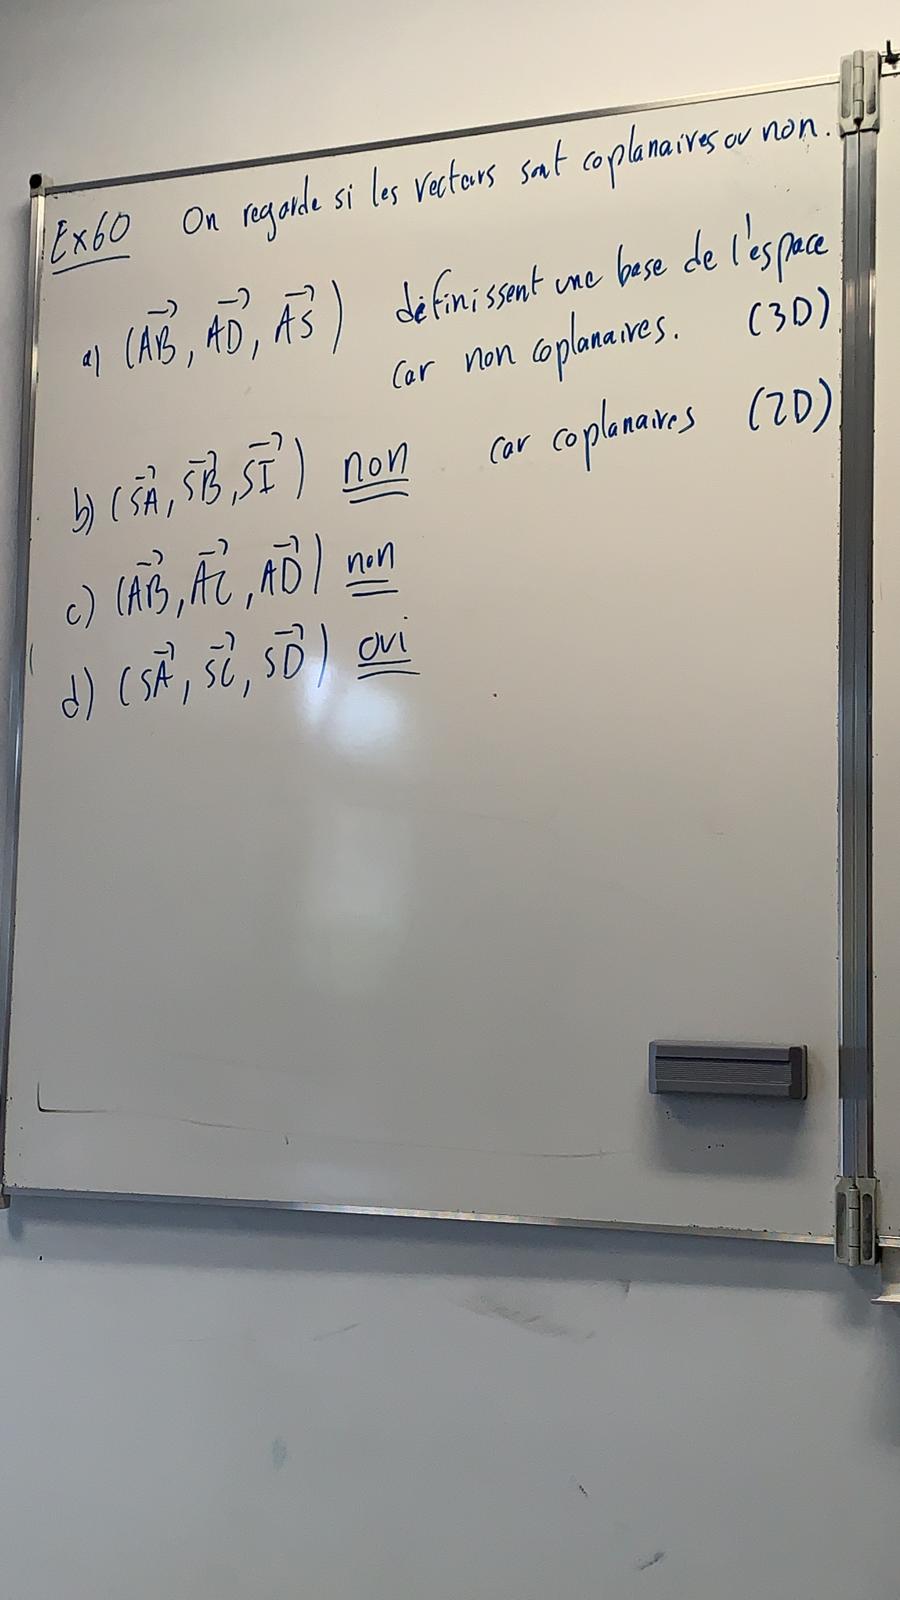 Ex60 On regarde si les vecteurs sont coplanaires ou non.
a) (AB, AD, AS) définissent une base de l'espace
car non coplanaires. (3D)
b) (SA, SB, SI) non car coplanaires (2D)
c) (AB, AC, AD) non
d) (SA, SC, SD) oui